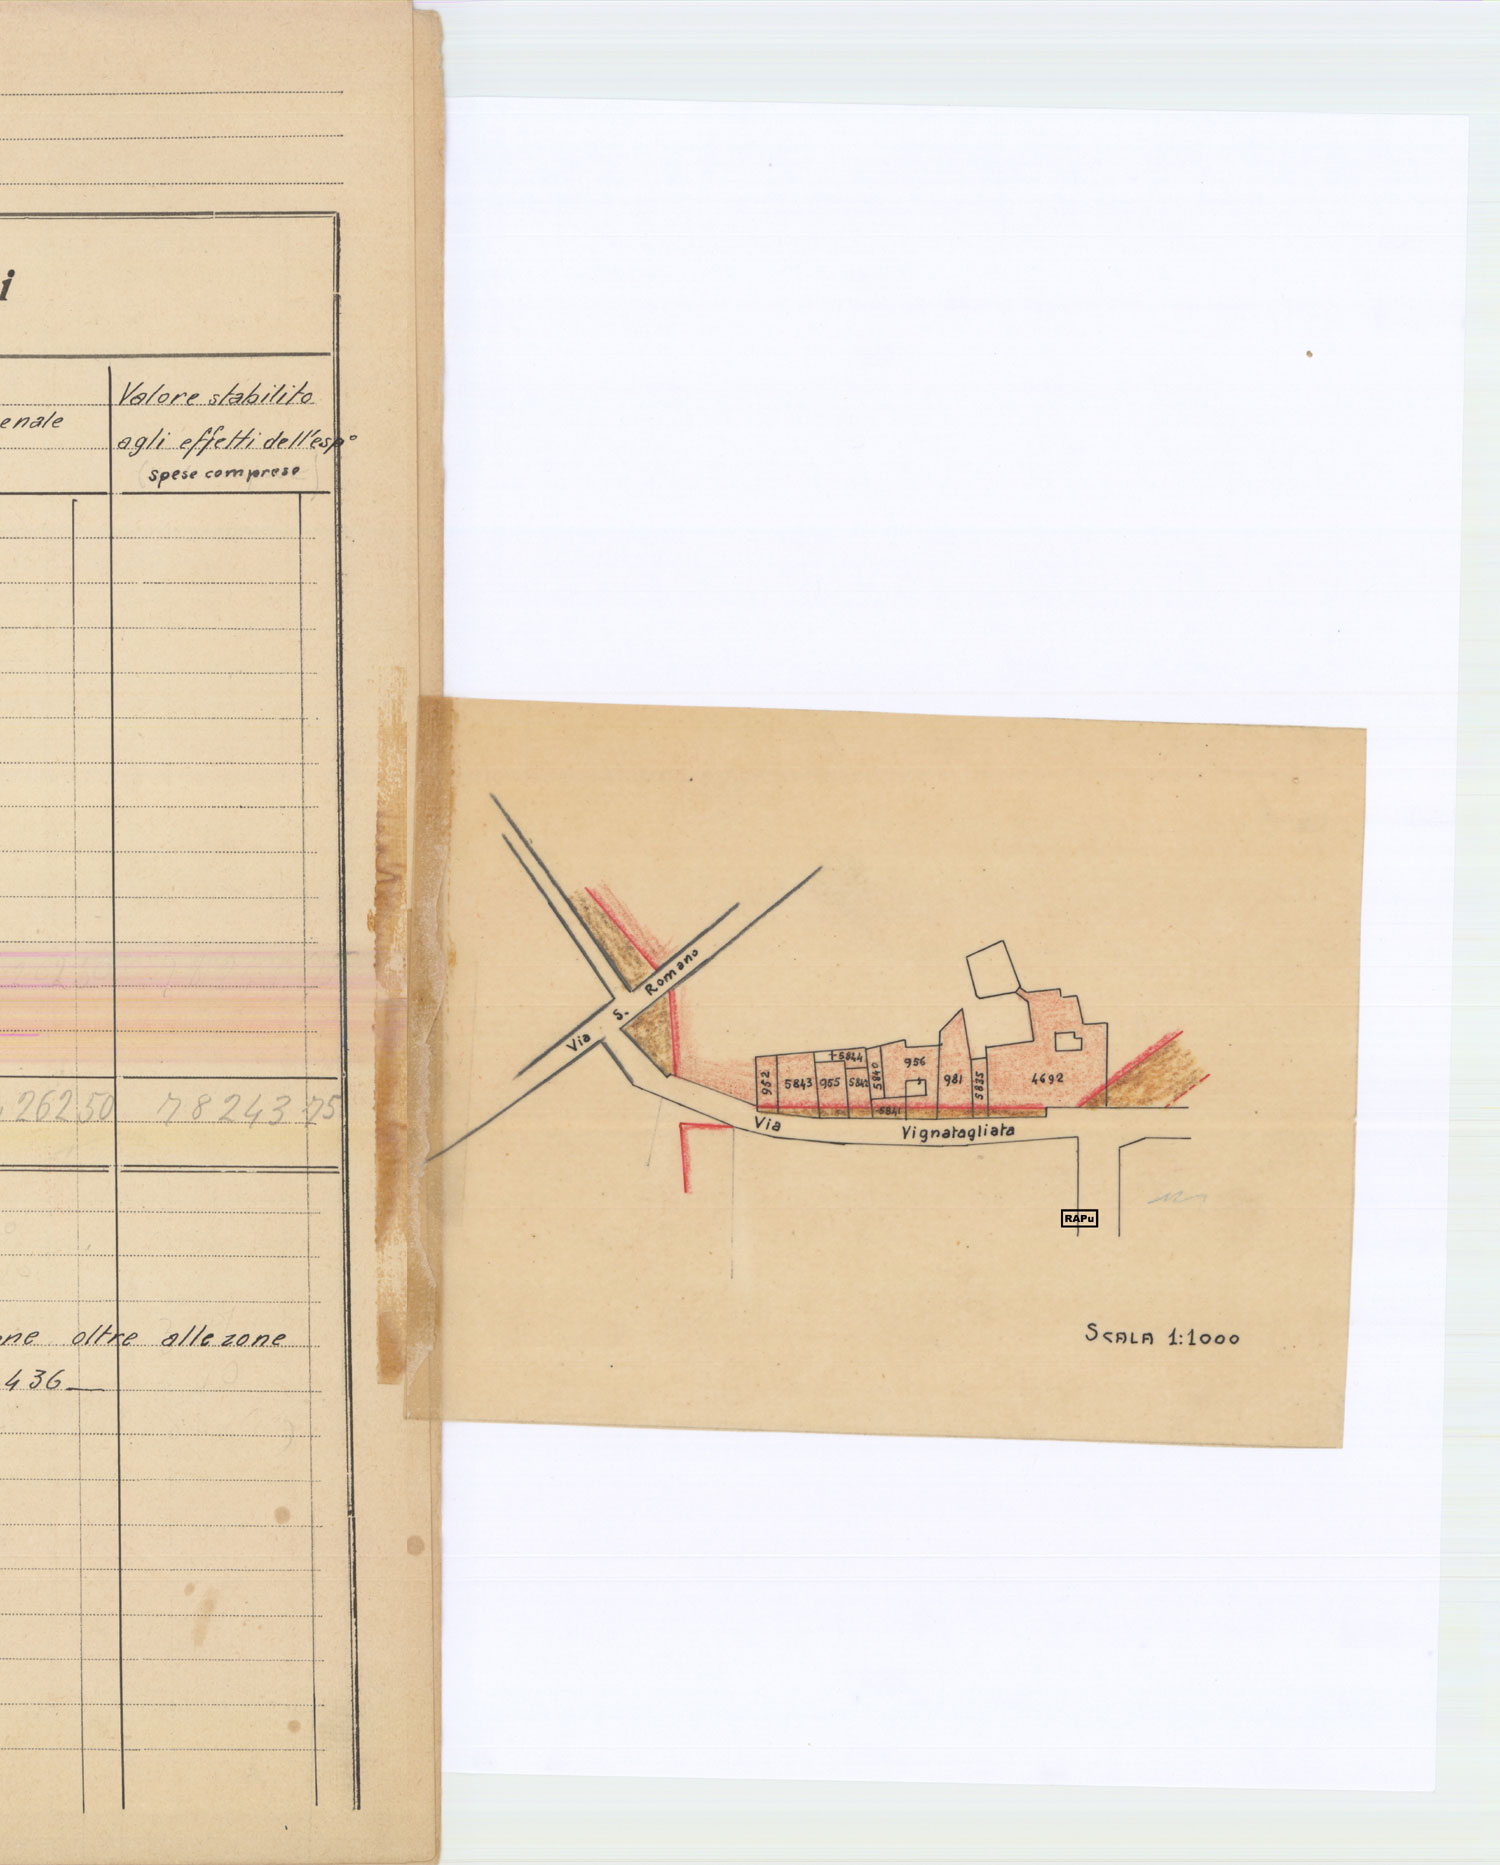 i
enale
Valore stabilito
agli effetti dell'espº
spese comprese
26250
78243 75
ne oltre alle zone
436
Via S. Romano
952
5843
955
+5844
5842
5840
956
5841
981
5835
4692
Via Vignatagliata
RAPu
SCALA 1:1000